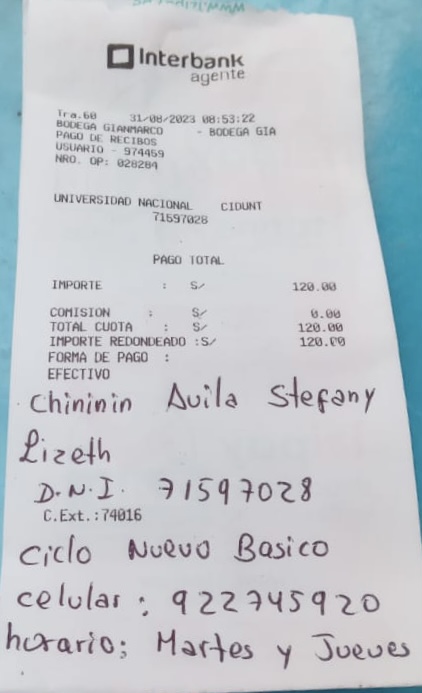 Interbank
agente
Tra.60 31/08/2023 08:53:22
BODEGA GIANMARCO - BODEGA GIA
PAGO DE RECIBOS
USUARIO - 974459
NRO. OP: 028284
UNIVERSIDAD NACIONAL CIDUNT
71597028
PAGO TOTAL
IMPORTE : S/ 120.00
COMISION : S/ 0.00
TOTAL CUOTA : S/ 120.00
IMPORTE REDONDEADO :S/ 120.00
FORMA DE PAGO :
EFECTIVO
Chininin Avila Stefany
Lizeth
D.N.I. 71597028
C.Ext.:74016
Ciclo Nuevo Basico
celular: 922745920
horario; Martes y Jueves